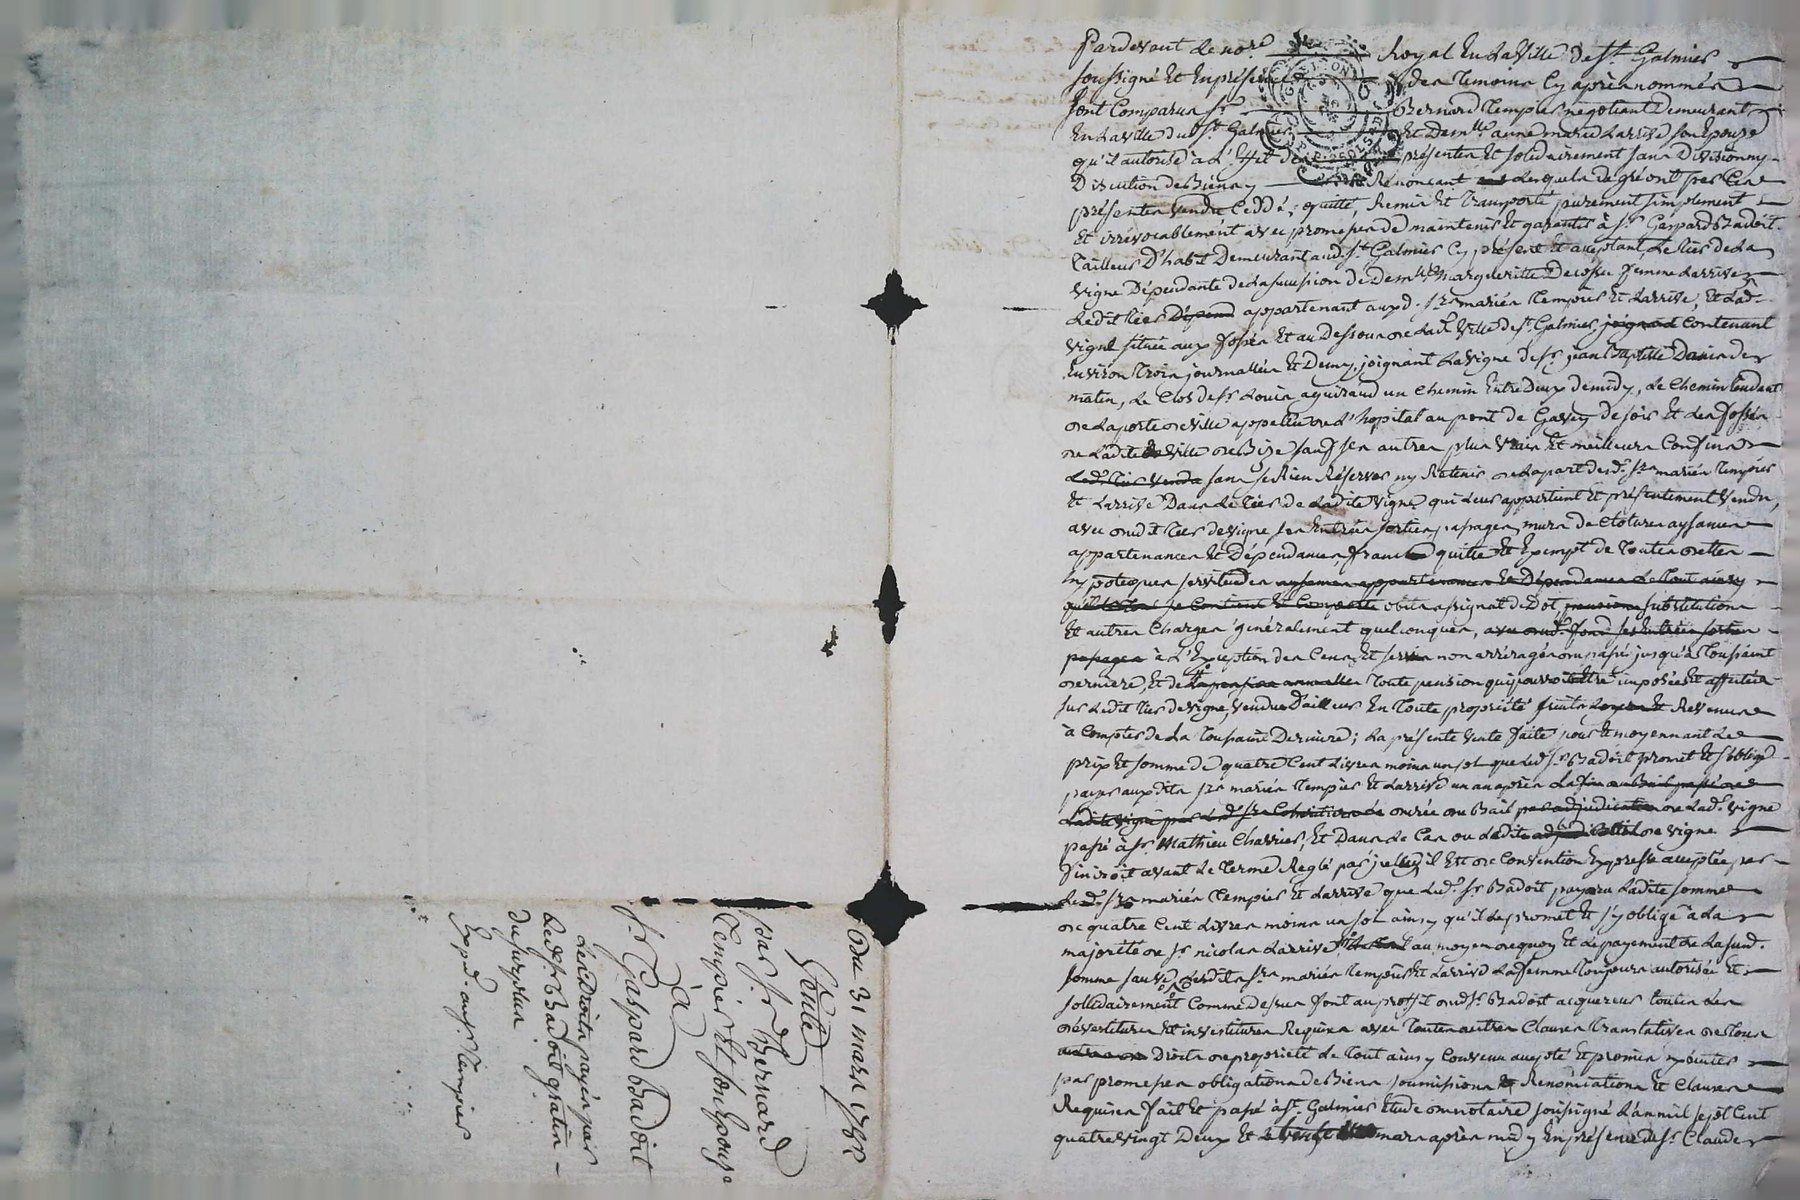 Pardevant le no.re Royal En la Ville de S.t Galmier
soussigné Et En présence des temoins Cy après nommés
sont Comparus s.r Bernard Tempier negotiant Demeurant
En la ville du S.t Galmier Et Dem.lle anne marie Larrive son Epouse
qu'il autorise à L'Effet des présentes Et solidairement sans Division ny
Discution de Biens y Renonçant lesquels de gré ont par Ces
présentes vendu Ceddé, quitté, Remis Et transporté purement simplement
Et irrévocablement avec promesse de maintenir Et garantir à s.r Gaspard Badoit
Tailleur D'habit Demeurant aud. S.t Galmier Cy présent Et acceptant, Le tier de La
vigne Dépendante de La succession de Dem.lle Margueritte Decossu femme Larrive
Ledit tier Dépend appartenant auxd. s.rs mariés Tempier Et Larrive, Et Lad.
vigne située aux fossés Et au Dessous de Lad.e Ville de S.t Galmier, joignant Contenant
Environ Trois journallées Et Demy, joignant La vigne de s.r jean Baptiste de
matin, Le Clos de s.r Louis aguiraud un chemin Entre Deux de midy, Le chemin tendant
de La porte de Ville appellée de L'hopital au pont de de soir Et Les fossés
de Ladite Ville de Bize sauf ses autres plus vrais Et meilleurs Confins
Led. tier vendu sans se Rien Réserver ny Retenir de La part desd. s.rs mariés Tempier
Et Larrive Dans Le tier de Ladite Vigne qui Leur appartient Et présentement Vendu,
avec dudit tier de vigne, ses Entrées sorties, passages, murs de Cloture aysances
appartenances Et Dépendances, franc quitte Et Exempt de toutes dettes
hypoteques servitudes aysances appartenances Et Dépendances Le tout ainsy
se Contient Et Comporte obits assignat de Dot, pensions substitutions
Et autres Charges généralement quelconques, avec dud. fond ses Entrées sorties
passages à L'Exception des Cens Et servis non arréragés du passé jusqu'à Toussaint
derniere, Et de La pension annuelle Toute pension qui pourroit Etre imposée Et affectée
sur Ledit tier de vigne, vendue D'ailleurs En toute propriété fruits Et Revenus
à Compter de La Toussaint Derniere; La présente vente faite pour Et moyennant Le
prix Et somme de quatre Cent Livres moins un sol que Led. s.r Badoit promet Et s'oblige
payer auxdits s.rs mariés Tempier Et Larrive un an après La fin du Bail passé de
Ladite vigne par Led. s.rs durée du Bail par adjudication de Lad.e vigne
passé à s.r Mathieu Charrier, Et Dans Le Cas ou Ledit Bail de vigne
finiroit avant Le terme Reglé par jcelluy il Est de Convention Expresse acceptée par
Led. s.rs mariés Tempier Et Larrive que Led. s.r Badoit payera Ladite somme
de quatre Cent Livres moins un sol ainsy qu'il Le promet Et s'y oblige à La
majorité de s.r nicolas Larrive au moyen dequoy Et Le payement de La susd.
somme sauve Lesdits s.rs mariés Tempier Et Larrive La femme toujours autorisée Et
sollidairement Comme dessus font au proffit dud. s.r Badoit acquereur toutes Les
dévestitures Et investitures Requises avec toutes autres Clauses translatives de tous
autres Droits de propriété Le tout ainsy Convenu accepté Et promis
par promesses obligations de Biens soumissions Et Rénonciations Et Clauses
Requises fait Et passé à S.t Galmier Etude du notaire soussigné L'an mil sept Cent
quatre vingt Deux Et Le mars après midy En présence de s.r Claude
Du 31 mars 1782
Vente
par s.r Bernard
Tempier Et son Epouse
à
s.r Gaspard Badoit
Les Droits payés par
Led. s.r Badoit gratis
du surplus
Exp.d. aux s.rs Tempier